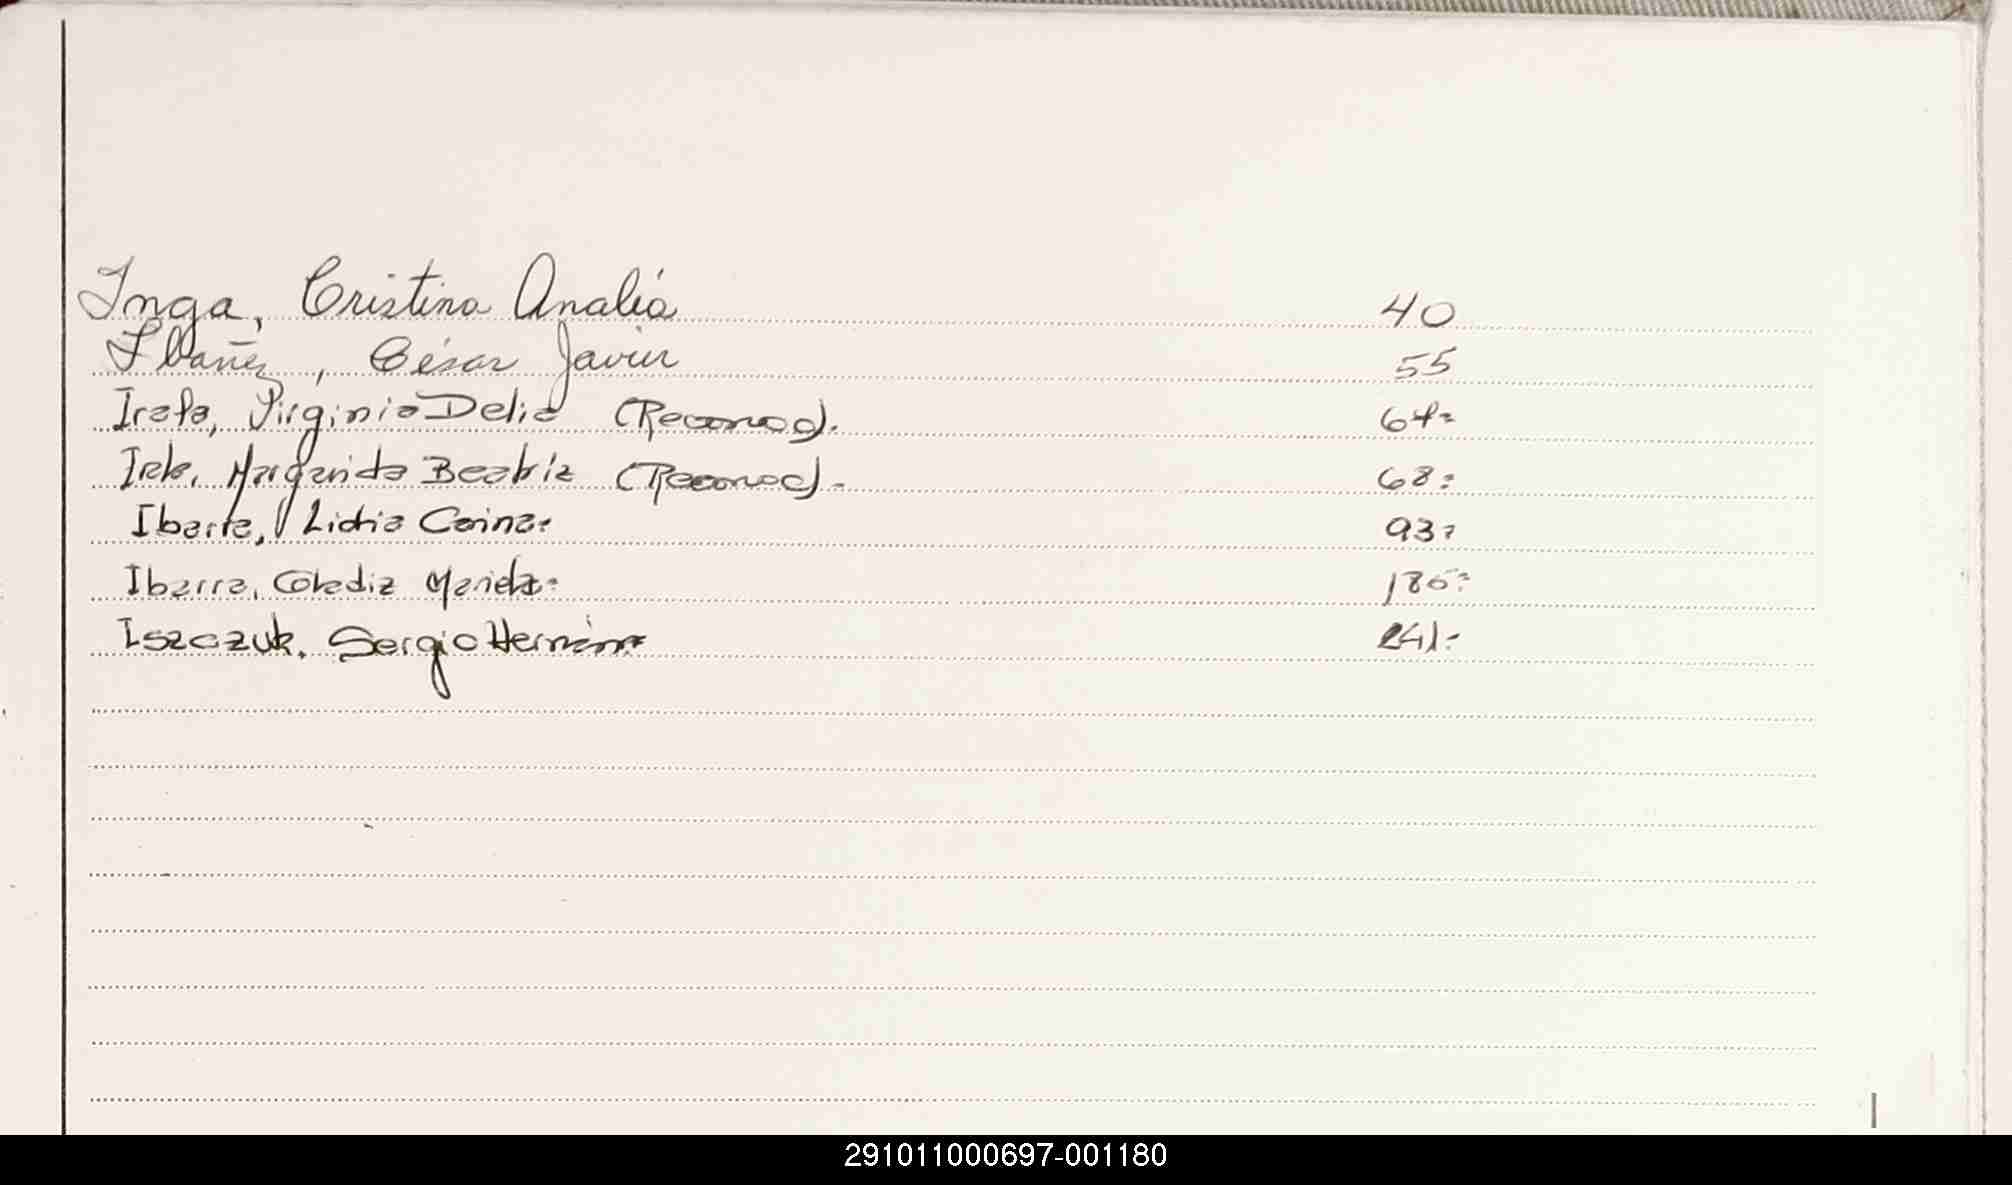 Inga, Cristina Analía 40
Ibañez, César Javier 55
Irala, Virginia Delia (Reconoc). 64=
Margarida Beatriz (Reconoc).- 68=
Ibarra, Lidia Carina. 93=
Ibarra, Mariela= 186=
Iszczuk, Sergio Hernán 241=
291011000697-001180